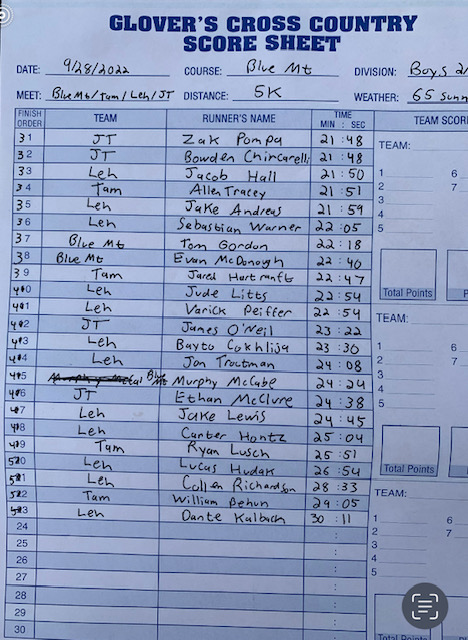 GLOVER'S CROSS COUNTRY
SCORE SHEET
DATE: 9/28/2022 COURSE: Blue Mt DIVISION: Boys
MEET: Blue Mt/Tam/Leh/JT DISTANCE: 5K WEATHER: 65 Sunn
FINISH ORDER TEAM RUNNER'S NAME TIME MIN : SEC TEAM SCOR
31 JT Zak Pompa 21:48
32 JT Bowden Chircarelli 21:48
33 Leh Jacob Hall 21:50
34 Tam Allen Tracey 21:51
35 Leh Jake Andreas 21:59
36 Leh Sebastian Warner 22:05
37 Blue Mt Tom Gordon 22:18
38 Blue Mt Evan McDonogh 22:40
39 Tam Jared Hartranft 22:47
40 Leh Jude Litts 22:54
41 Leh Varick Peiffer 22:54
42 JT James O'Neil 23:22
43 Leh Bayto Cokhlija 23:30
44 Leh Jon Troutman 24:08
45 Blue Mt Murphy McCabe 24:24
46 JT Ethan McClure 24:38
47 Leh Jake Lewis 24:45
48 Leh Carter Hontz 25:04
49 Tam Ryan Lusch 25:51
50 Leh Lucas Hudak 26:54
51 Leh Collen Richardson 28:33
52 Tam William Behun 29:05
53 Leh Dante Kalbach 30:11
24
25
26
27
28
29
30
TEAM:
1 6
2 7
3
4
5
Total Points
TEAM:
1 6
2 7
3
4
5
Total Points
TEAM:
1 6
2 7
3
4
5
Total Points